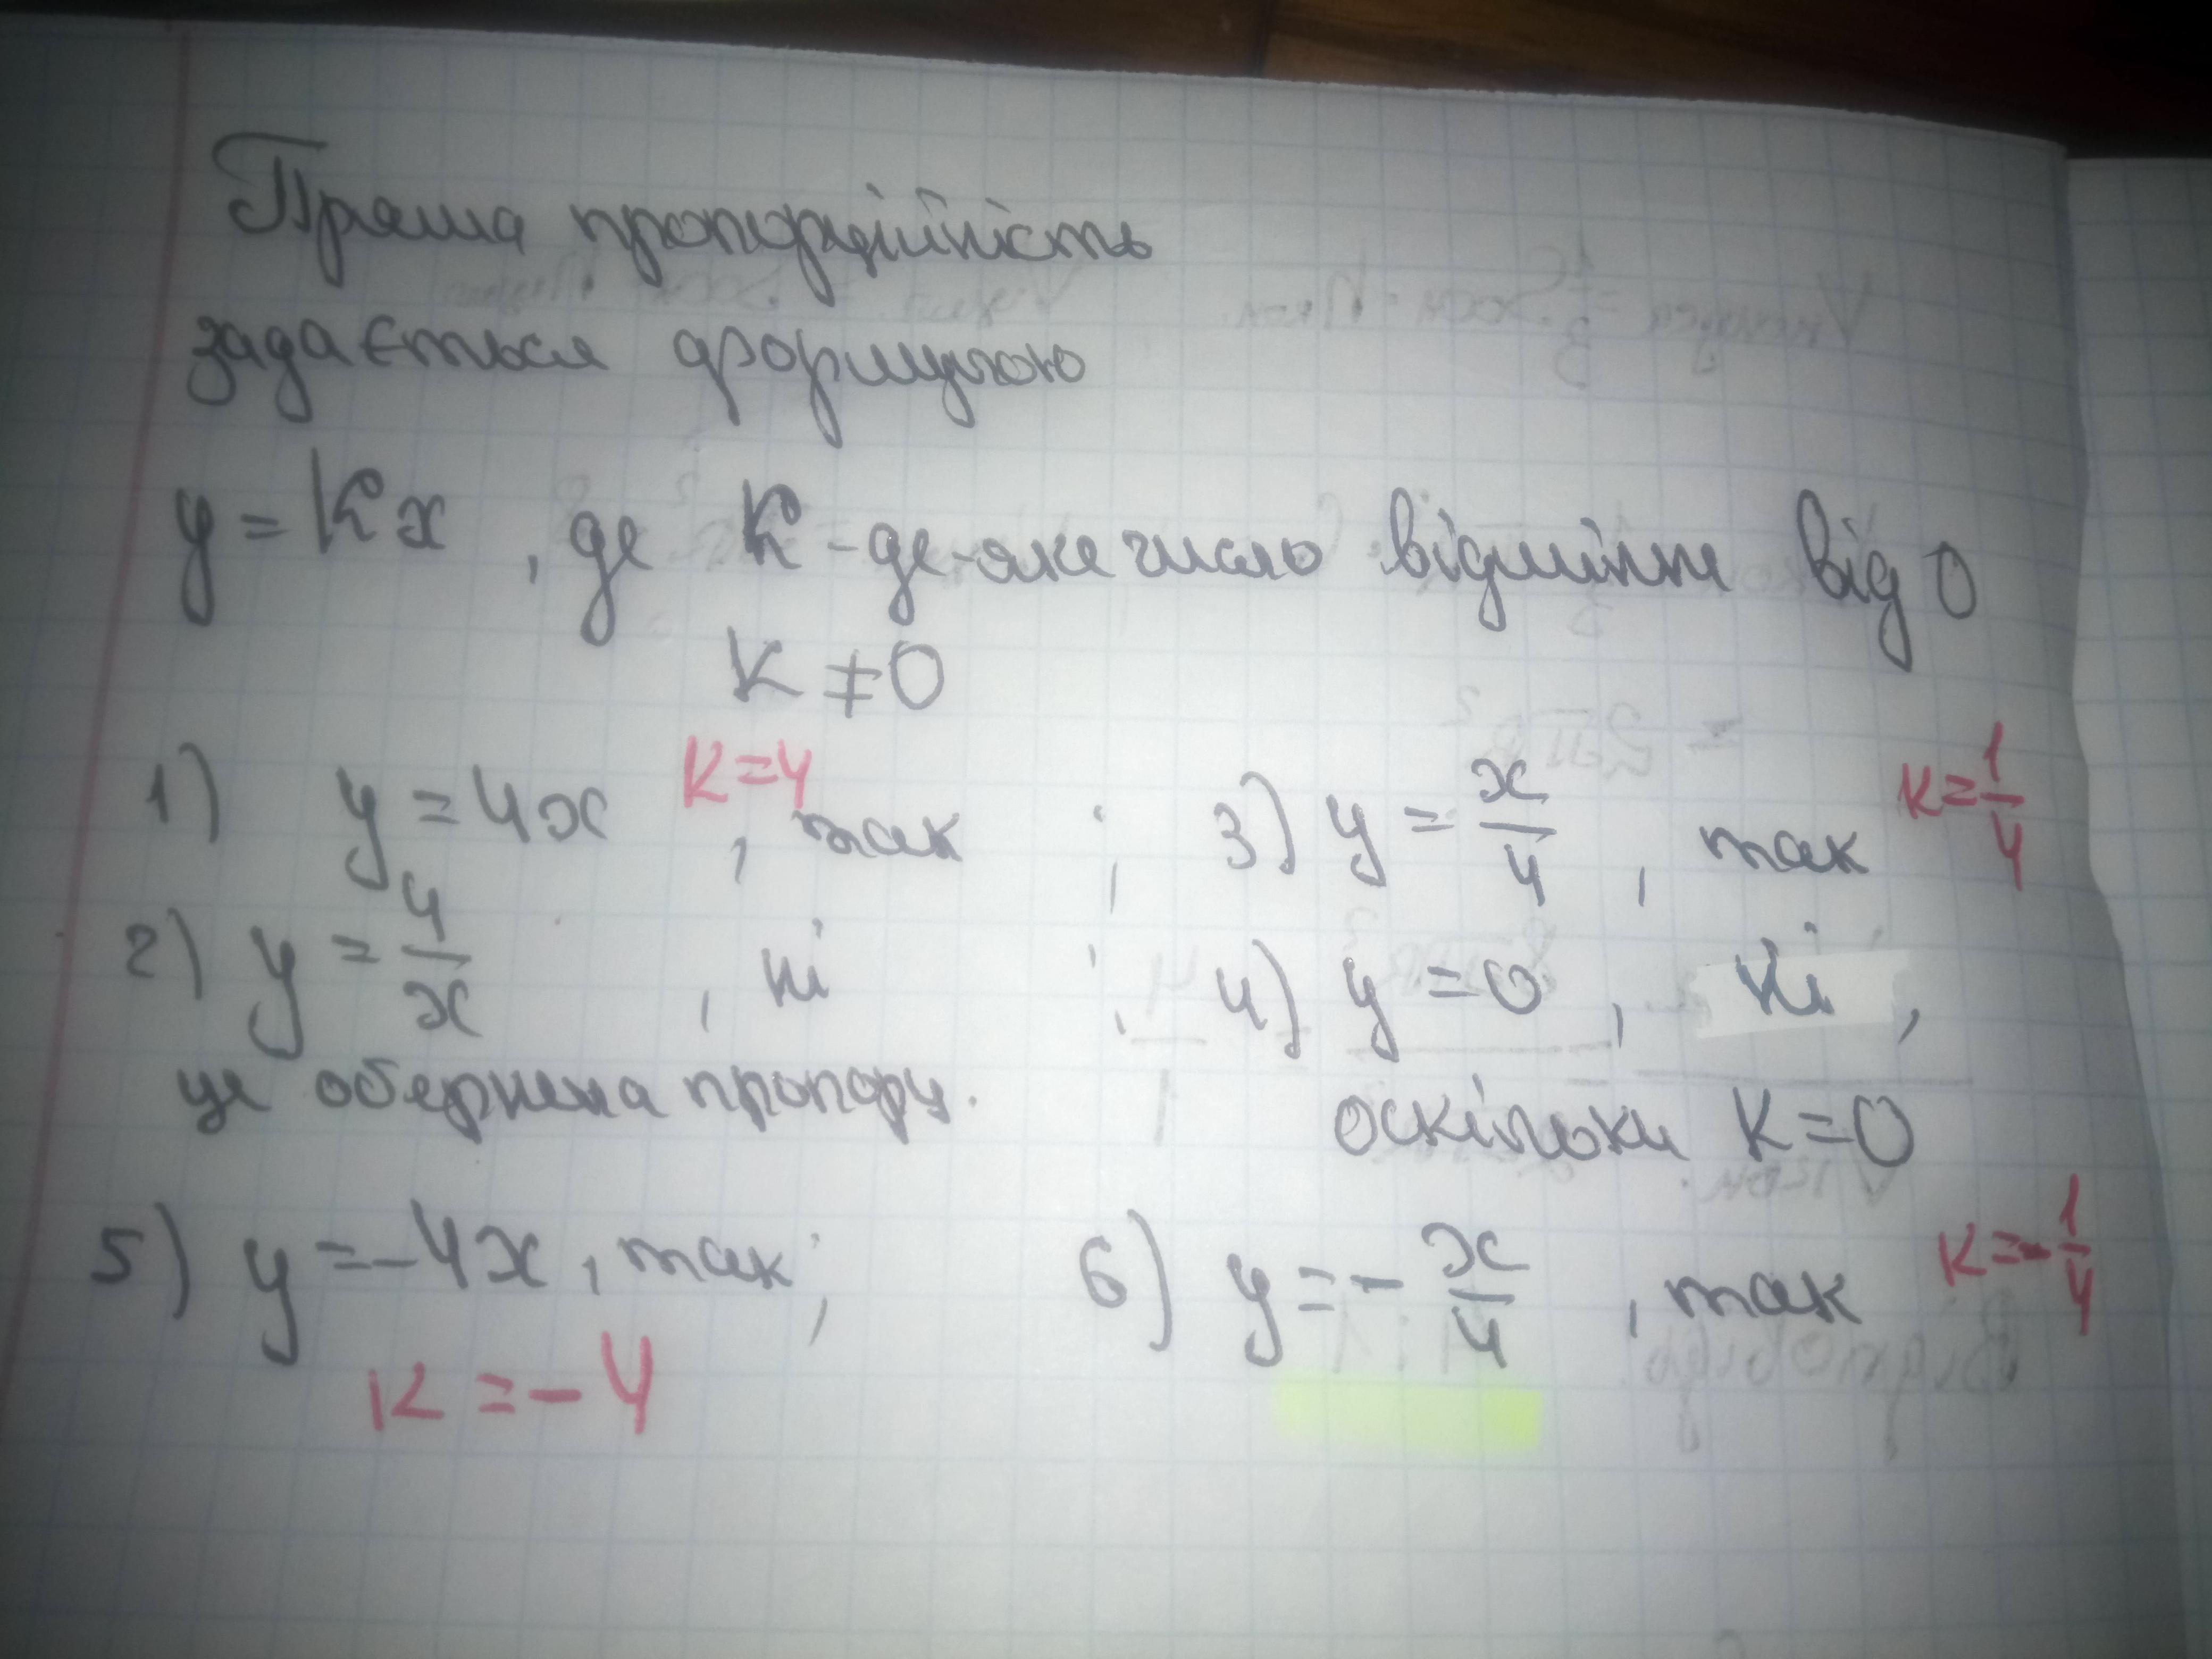 Пряма пропорційність
задається формулою
y = kx , де k - де-яке число відмінне від 0
k ≠ 0
1) y = 4x k=4 , так ;
3) y = x/4 , так k=1/4
2) y = 4/x , ні ;
4) y = 0 , ні ,
це обернена пропорц.
оскільки k = 0
5) y = -4x , так ;
6) y = - x/4 , так k=-1/4
k = -4